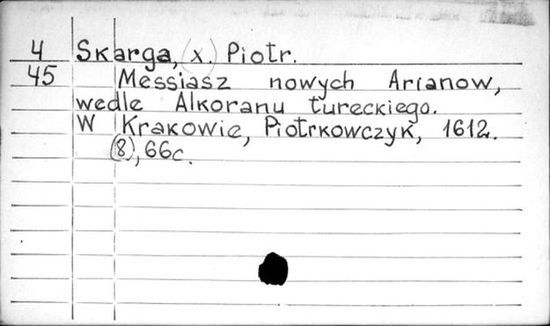 4 Skarga, (x.) Piotr.
45 Messiasz nowych Arianow,
wedle Alkoranu tureckiego.
W Krakowie, Piotrkowczyk, 1612.
(8), 66c.